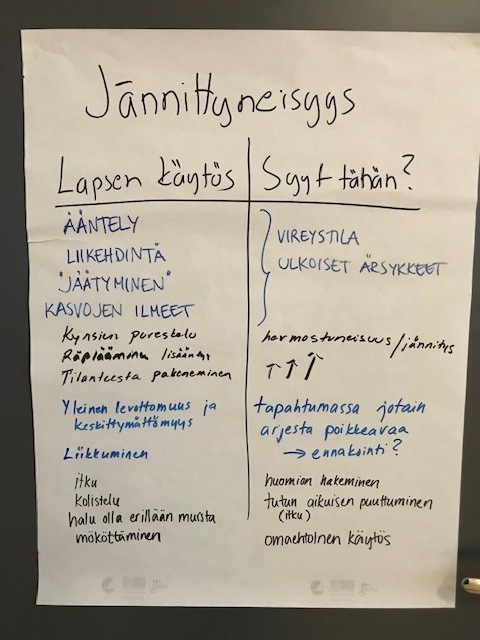 Jännittyneisyys
Lapsen käytös
Syyt tähän?
ÄÄNTELY
LIIKEHDINTÄ
"JÄÄTYMINEN"
KASVOJEN ILMEET
VIREYSTILA
ULKOISET ÄRSYKKEET
Kynsien pureskelu
Räplääminen lisääntyy
Tilanteesta pakeneminen
hermostuneisuus/jännitys
↑ ↑ ↑
Yleinen levottomuus ja
keskittymättömyys
Liikkuminen
tapahtumassa jotain
arjesta poikkeavaa
→ ennakointi?
itku
kolistelu
halu olla erillään muista
mököttäminen
huomion hakeminen
tutun aikuisen puuttuminen
(itku)
omaehtoinen käytös